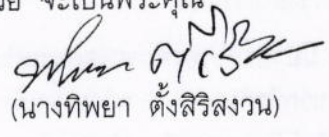 จะเป็นพระคุณ
(นางทิพยา ตั้งสิริสงวน)